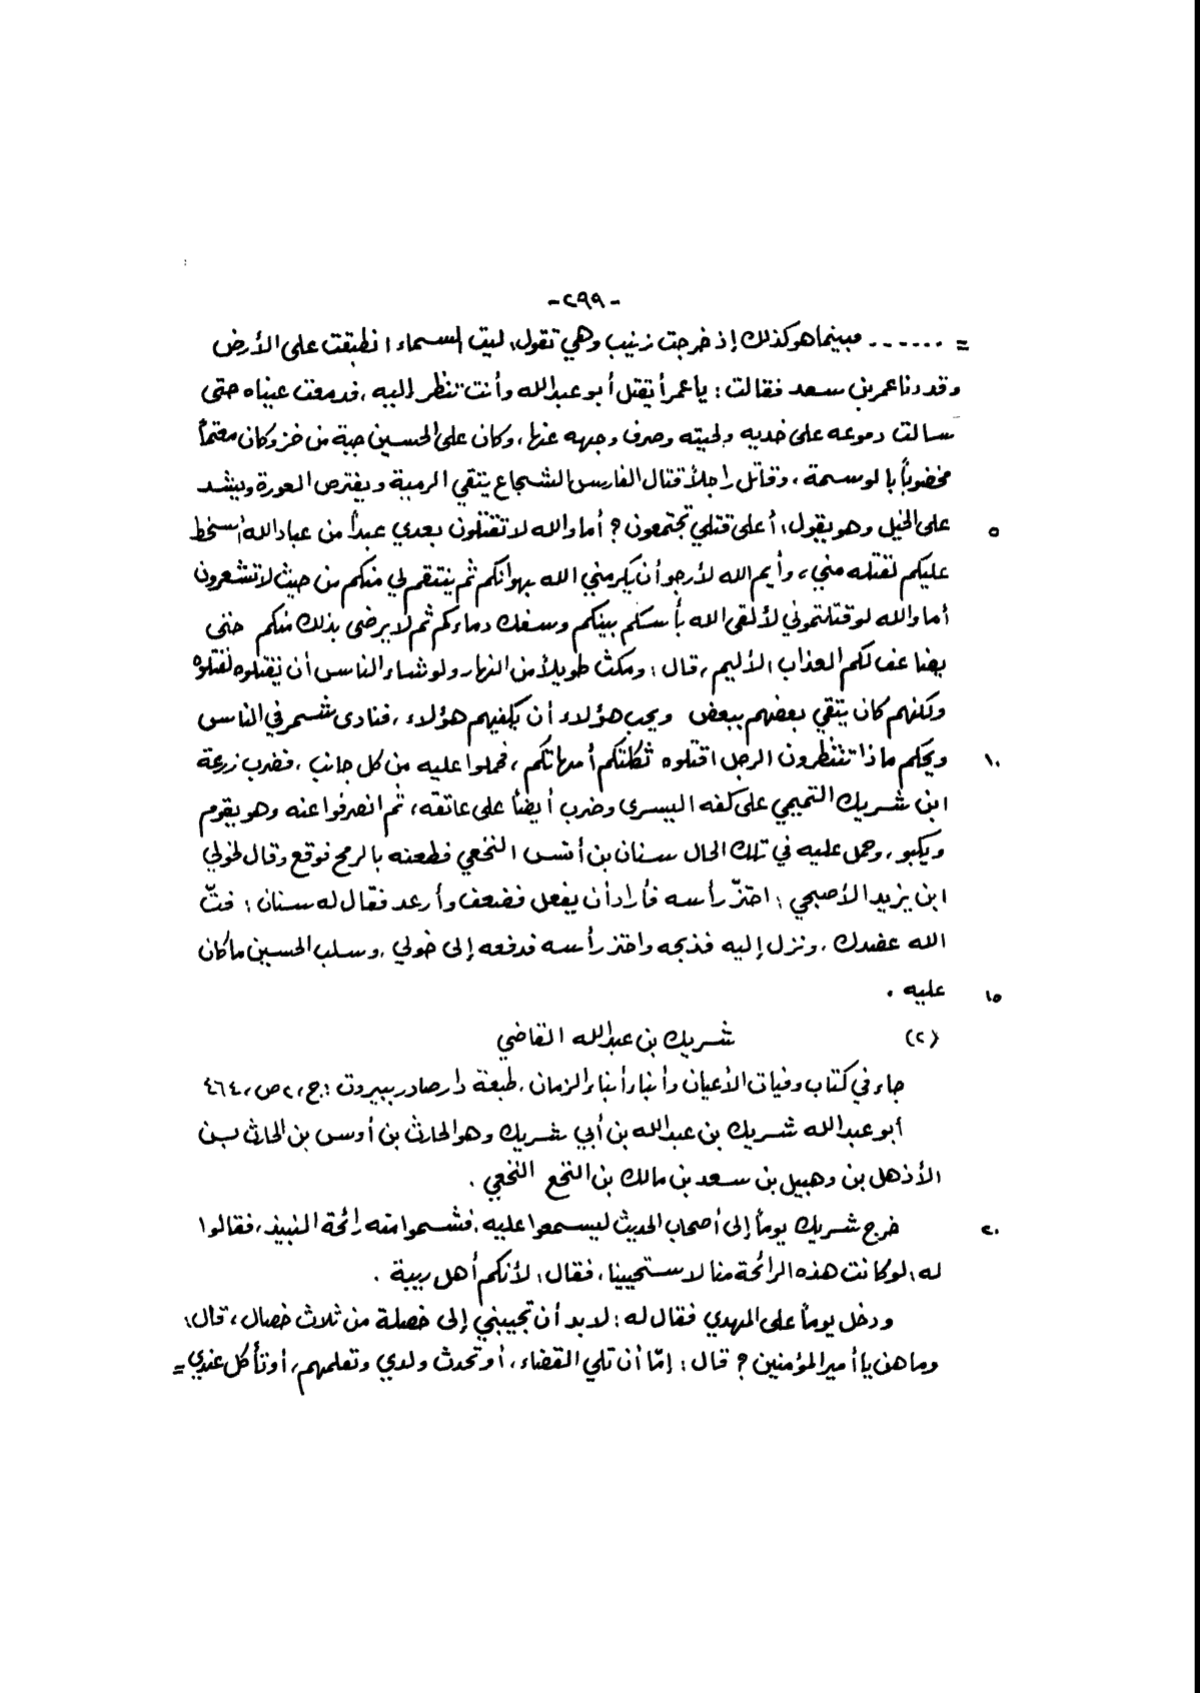 -٢٩٩-
= ...... فبينما هو كذلك إذ خرجت زينب وهي تقول: ليت السماء انطبقت على الأرض
وقد دنا عمر بن سعد فقالت: يا عمر أيقتل أبو عبدالله وأنت تنظر إليه، فدمعت عيناه حتى
سالت دموعه على خديه ولحيته وصرف وجهه عنها، وكان على الحسين جبة من خز وكان معتماً
مخضوباً بالوسمة، وقاتل راجلاً قتال الفارس الشجاع يتقي الرمية ويفترص العورة ويشد
على الخيل وهو يقول: أعلى قتلي تجتمعون؟ أما والله لا تقتلون بعدي عبداً من عباد الله أسخط ٥
عليكم لقتله مني، وأيم الله لأرجو أن يكرمني الله بهوانكم ثم ينتقم لي منكم من حيث لا تشعرون
أما والله لو قتلتموني لألقى الله بأسكم بينكم وسفك دماءكم ثم لا يرضى بذلك منكم حتى
يضاعف لكم العذاب الأليم، قال: ومكث طويلاً من النهار ولو شاء الناس أن يقتلوه لقتلوه
ولكنهم كان يتقي بعضهم ببعض ويحب هؤلاء أن يكفيهم هؤلاء، فنادى شمر في الناس
ويحكم ماذا تنتظرون الرجل اقتلوه ثكلتكم أمهاتكم، فحملوا عليه من كل جانب، فضرب زرعة ١٠
ابن شريك التميمي على كفه اليسرى وضرب أيضاً على عاتقه، ثم انصرفوا عنه وهو يقوم
ويكبو، وحمل عليه في تلك الحال سنان بن أنس النخعي فطعنه بالرمح فوقع وقال لخولي
ابن يزيد الأصبحي: احتزّ رأسه فأراد أن يفعل فضعف وأرعد فقال له سنان: فتّ
الله عضدك، ونزل إليه فذبحه واحتز رأسه فدفعه إلى خولي، وسلب الحسين ما كان
عليه. ١٥
(٢) شريك بن عبدالله القاضي
جاء في كتاب وفيات الأعيان وأنباء أبناء الزمان، طبعة دار صادر ببيروت: ج،٢ ص،٤٦٤
أبو عبدالله شريك بن عبدالله بن أبي شريك وهو الحارث بن أوس بن الحارث بن
الأذهل بن وهبيل بن سعد بن مالك بن النخع النخعي.
خرج شريك يوماً إلى أصحاب الحديث ليسمعوا عليه، فشموا منه رائحة النبيذ، فقالوا ٢٠
له: لو كانت هذه الرائحة منا لاستحيينا، فقال: لأنكم أهل ريبة.
ودخل يوماً على المهدي فقال له: لا بد أن تجيبني إلى خصلة من ثلاث خصال، قال:
وما هن يا أمير المؤمنين؟ قال: إمّا أن تلي القضاء، أو تحدث ولدي وتعلمهم، أو تأكل عندي =